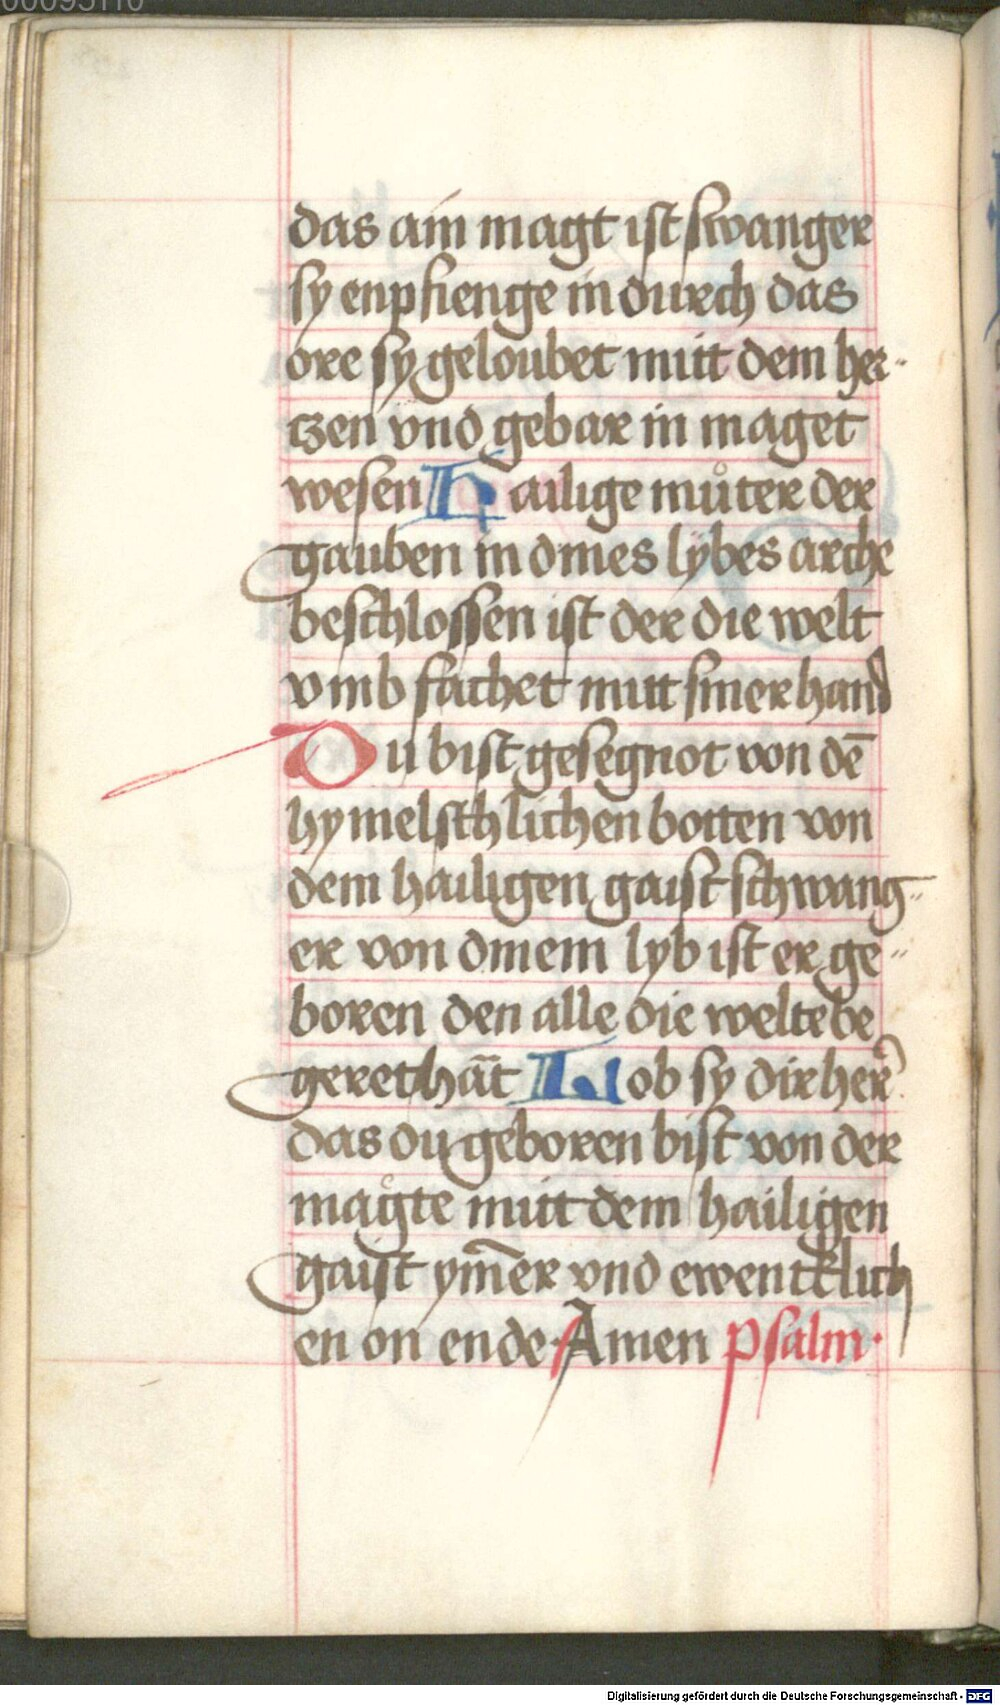 00095110
das ain magt ist swanger
sy enpfienge in durch das
ore sy geloubet mitt dem her-
tzen vnd gebar in maget
wesen Hailige můter der
gauben in dines lybes arche
beschlossen ist der die welt
vmb fachet mitt siner hand
Du bist gesegnot von dē
hymelschlichen botten von
dem hailigen gaist schwang-
er von dinem lyb ist er ge-
boren den alle die welte be
geret hāt Lob sy dir her
das du geboren bist von der
magte mitt dem hailigen
gaist ym̄er vnd ewencklich
en on ende Amen psalm
Digitalisierung gefördert durch die Deutsche Forschungsgemeinschaft - DFG